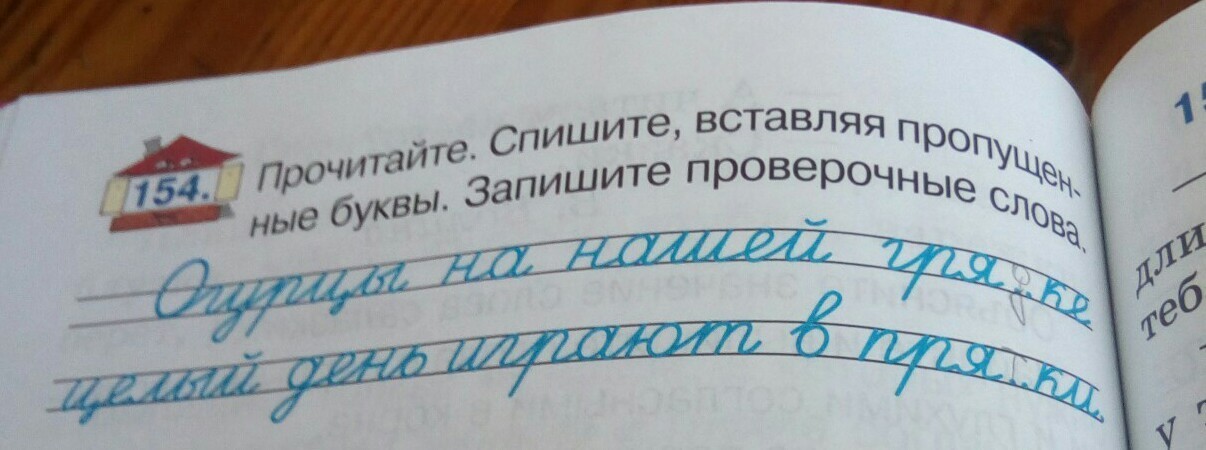 154. Прочитайте. Спишите, вставляя пропущен-
ные буквы. Запишите проверочные слова.
Огурцы на нашей гря..ке
целый день играют в пря..ки.
дли
теб
у